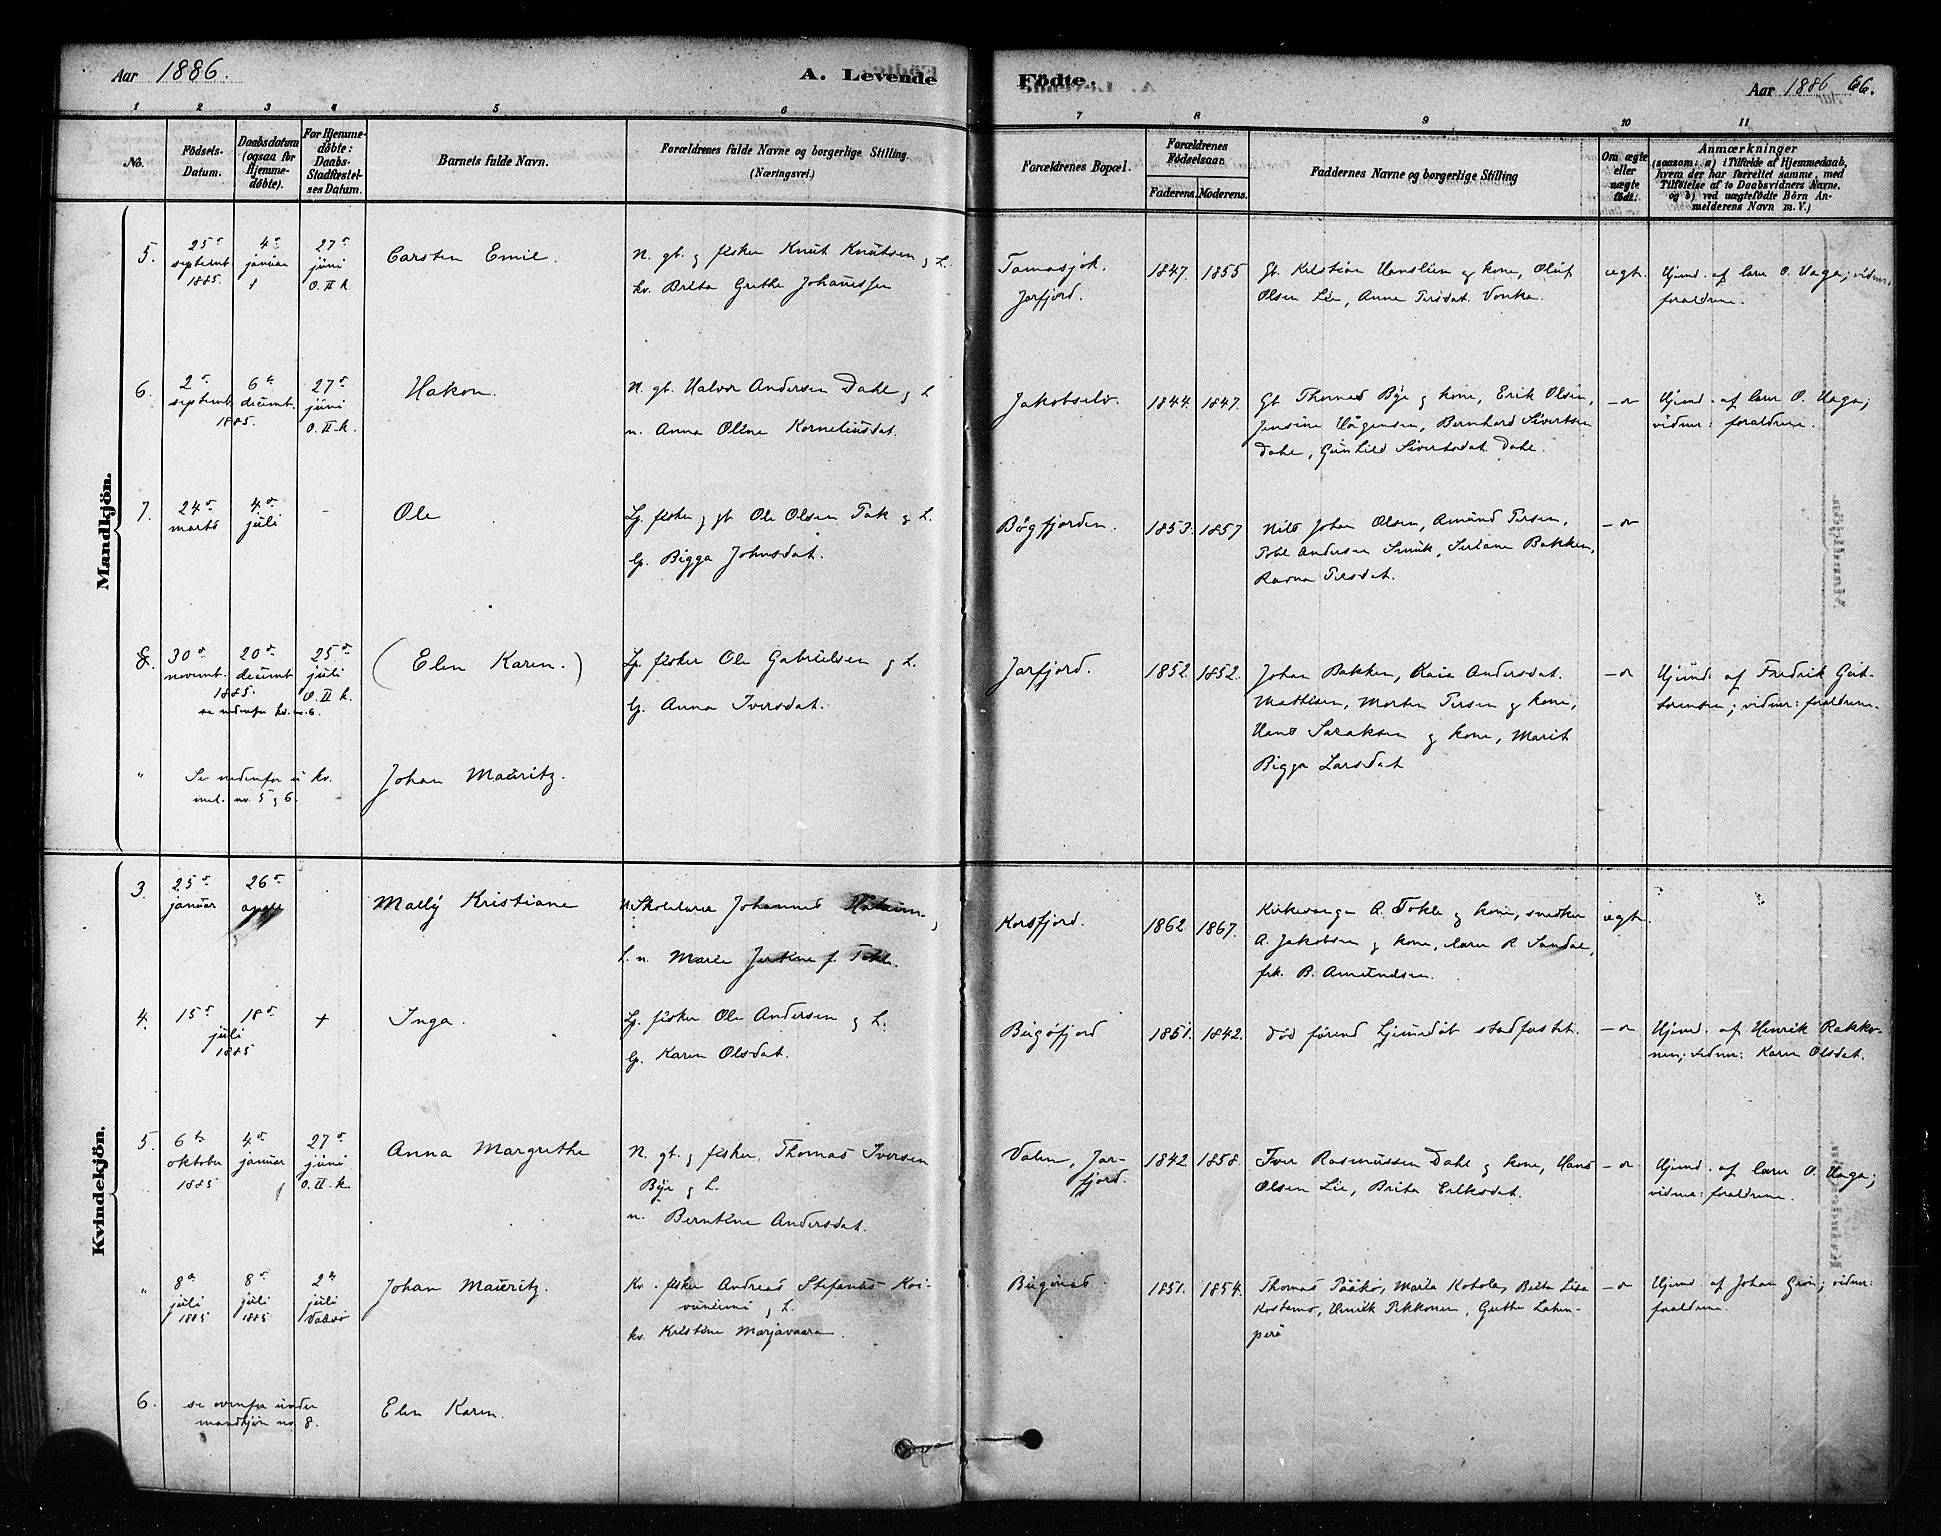 Aar 1886.
A. Levende
Födte.
Aar 1886 66.
1 2 3 4 5 6 7 8 9 10 11
No.
Födsels-
Datum.
Daabsdatum
(ogsaa for
Hjemme-
döbte).
For Hjemme-
döbte:
Daabs-
Stadfæstel-
ses Datum.
Barnets fulde Navn.
Forældrenes fulde Navne og borgerlige Stilling.
(Næringsvei.)
Forældrenes Bopæl.
Forældrenes
Födselsaar.
Faderens. Moderens.
Faddernes Navne og borgerlige Stilling
Om ægte
eller
uægte
födt.
Anmærkninger
(saasom: a) i Tilfælde af Hjemmedaab,
hvem der har forrettet samme, med
Tilföielse af to Daabsvidners Navne,
og b) ved uægtefödte Börn An-
melderens Navn m. V.)
Mandkjön.
5.
25de
septembr.
1885.
4de
januar
27de
juni
O. II k.
Carsten Emil.
N. gb. og fisker Knut Knutsen og h.
kv. Brita Grethe Johannessen
Jarfjord.
1847. 1855
Gb. Kristian Hanslien og kone, Oluf
Olsen Lie, Anne Persdat. Vonka.
ægt.
Hjemd. af lærer O. Haga; vidner:
forældrene.
6.
2de
septembr.
1885.
6te
decembr.
27de
juni
O. II. k.
Hakon.
N. gb. Halvor Andersen Dahl og h.
n. Anna Oline Korneliusdat.
Jakobselv.
1844. 1847.
Gb. Thomas Bye og kone, Erik Olsen,
Jensine Hågensen, Bernhard Sivertsen
Dahl, Gunhild Sivertsdat. Dahl.
— " —
Hjemd. af lærer O. Haga;
vidner: forældrene.
7.
24de
marts
4de
juli
-
Ole
Lp. fisker og gb. Ole Olsen Pak og h.
lp. Bigga Johnsdat.
Bøgfjorden.
1853. 1857
Nils Johan Olsen, Amund Persen,
Andersen Smuk, Bakken,
Ravna Persdat.
— " —
8.
30de
novembr.
1885.
20de
decembr.
25de
juli
O. II k.
se nedenfor kv. no. 6.
(Elen Karen.)
Lp. fisker Ole Gabrielsen og h.
lp. Anna Iversdat.
Jarfjord.
1852 1852.
Johan Bakken, Kaia Andersdat.
Mathisen, Morten Persen og kone,
Hans Saraksen og kone, Marit
Bigga Larsdat
— " —
Hjemd. af Fredrik Gut-
tormsen; vidner: forældrene.
"
Se nedenfor u. kv.
mel. no. 5 og 6.
Johan Mauritz.
Kvindekjön.
3.
25de
januar
26de
april
Mally Kristiane
N. Skolelærer Johannes
h. n. Marie f. Tokle.
Korsfjord.
1862 1867.
Kirkesanger A. Tokle og kone, snedker
A. Jakobsen og kone, lærer R. Sandal,
frk. B. Amundsen.
ægt.
4.
15de 18de
juli
1885
+
Inga.
Lp. fisker Ole Andersen og h.
lp. Karen Olsdat.
Bugøfjord
1851. 1842.
død førend hjemdåb stadfæstet.
— " —
Hjemd. af Henrik Rakko-
nen; vidner: Karen Olsdat.
5
6te
oktober
1885
4de
januar
27de
juni
O. II. k.
Anna Margrethe
N. gb. og fisker Thomas Iversen
Bye og h.
n. Berntine Andersdat.
Valen, Jar-
fjord.
1842 1858.
Iver Rasmussen Dahl og kone, Hans
Olsen Lie, Brita Eriksdat.
— " —
Hjemd. af lærer O. Haga;
vidner: forældrene.
"
8de
juli
1885
8de
juli
1885
2den
juli
Vadsø
Johan Mauritz.
Kv. fisker Andreas Stefanus Koi-
vuniemi og h.
kv. Kristine Marjavaara.
Bugønes
1851. 1854.
Thomas Pääkö, Maria Kotola, Brita Lisa
Kostamo, Henrik Pekkonen, Grethe Laten-
perä
— " —
Hjemd. af Johan Grøn; vidner:
forældrene.
6.
se ovenfor under
mandkjøn no. 8.
Elen Karen.